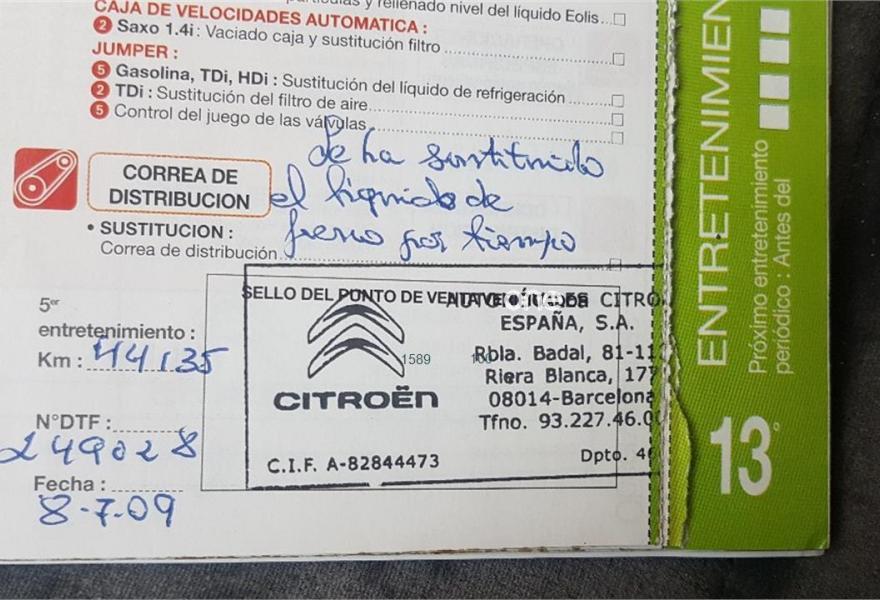 y rellenado nivel del líquido Eolis...
CAJA DE VELOCIDADES AUTOMATICA :
2 Saxo 1.4i : Vaciado caja y sustitución filtro
JUMPER :
5 Gasolina, TDi, HDi : Sustitución del líquido de refrigeración
2 TDi : Sustitución del filtro de aire
5 Control del juego de las válvulas
CORREA DE
DISTRIBUCION
• SUSTITUCION :
Correa de distribución
Se ha sustituido
el liquido de
freno por tiempo
5er
entretenimiento :
Km : 44135
N°DTF :
249028
Fecha :
8-7-09
SELLO DEL PUNTO DE VENTA
CITRO
ESPAÑA, S.A.
Rbla. Badal, 81-11
Riera Blanca, 177
08014-Barcelona
Tfno. 93.227.46.0
Dpto. 4
CITROËN
C.I.F. A-82844473
1589
ENTRETENIMIEN
Próximo entretenimiento
periódico : Antes del
13°